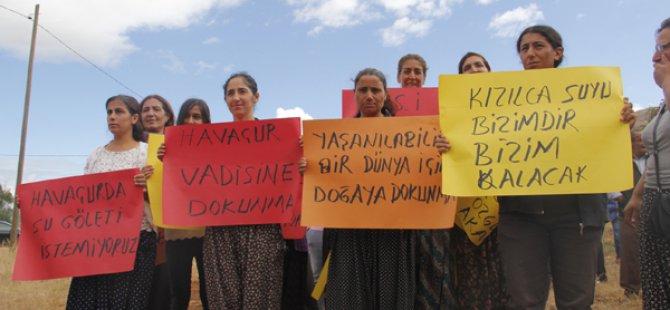 HAVAGURDA
SU GÖLETİ
İSTEMİYORUZ
HAVAGUR
VADİSİNE
DOKUNMA
YAŞANILABİLİ
BİR DÜNYA İÇİN
DOĞAYA DOKUNMA
KIZILCA SUYU
BİZİMDİR
BİZİM
KALACAK